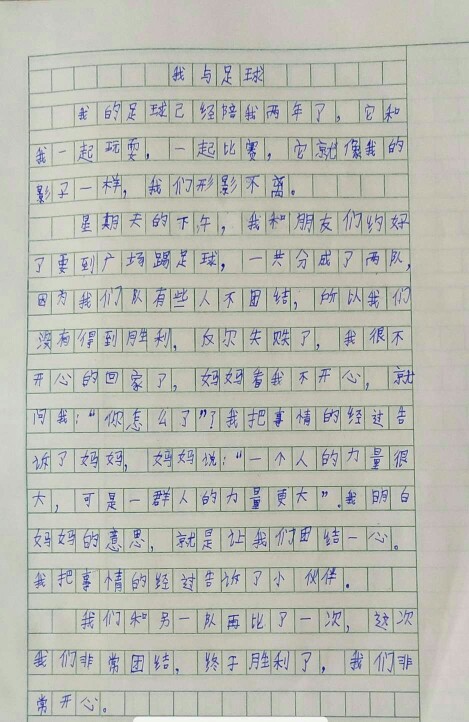 我与足球
我的足球已经陪我两年了，它和
我一起玩耍，一起比赛，它就像我的
影子一样，我们形影不离。
星期天的下午，我和朋友们约好
了要到广场踢足球，一共分成了两队，
因为我们队有些人不团结，所以我们
没有得到胜利，反尔失败了，我很不
开心的回家了，妈妈看我不开心，就
问我：“你怎么了”？我把事情的经过告
诉了妈妈，妈妈说：“一个人的力量很
大，可是一群人的力量更大”。我明白
妈妈的意思，就是让我们团结一心。
我把事情的经过告诉了小伙伴。
我们和另一队再比了一次，这次
我们非常团结，终于胜利了，我们非
常开心。